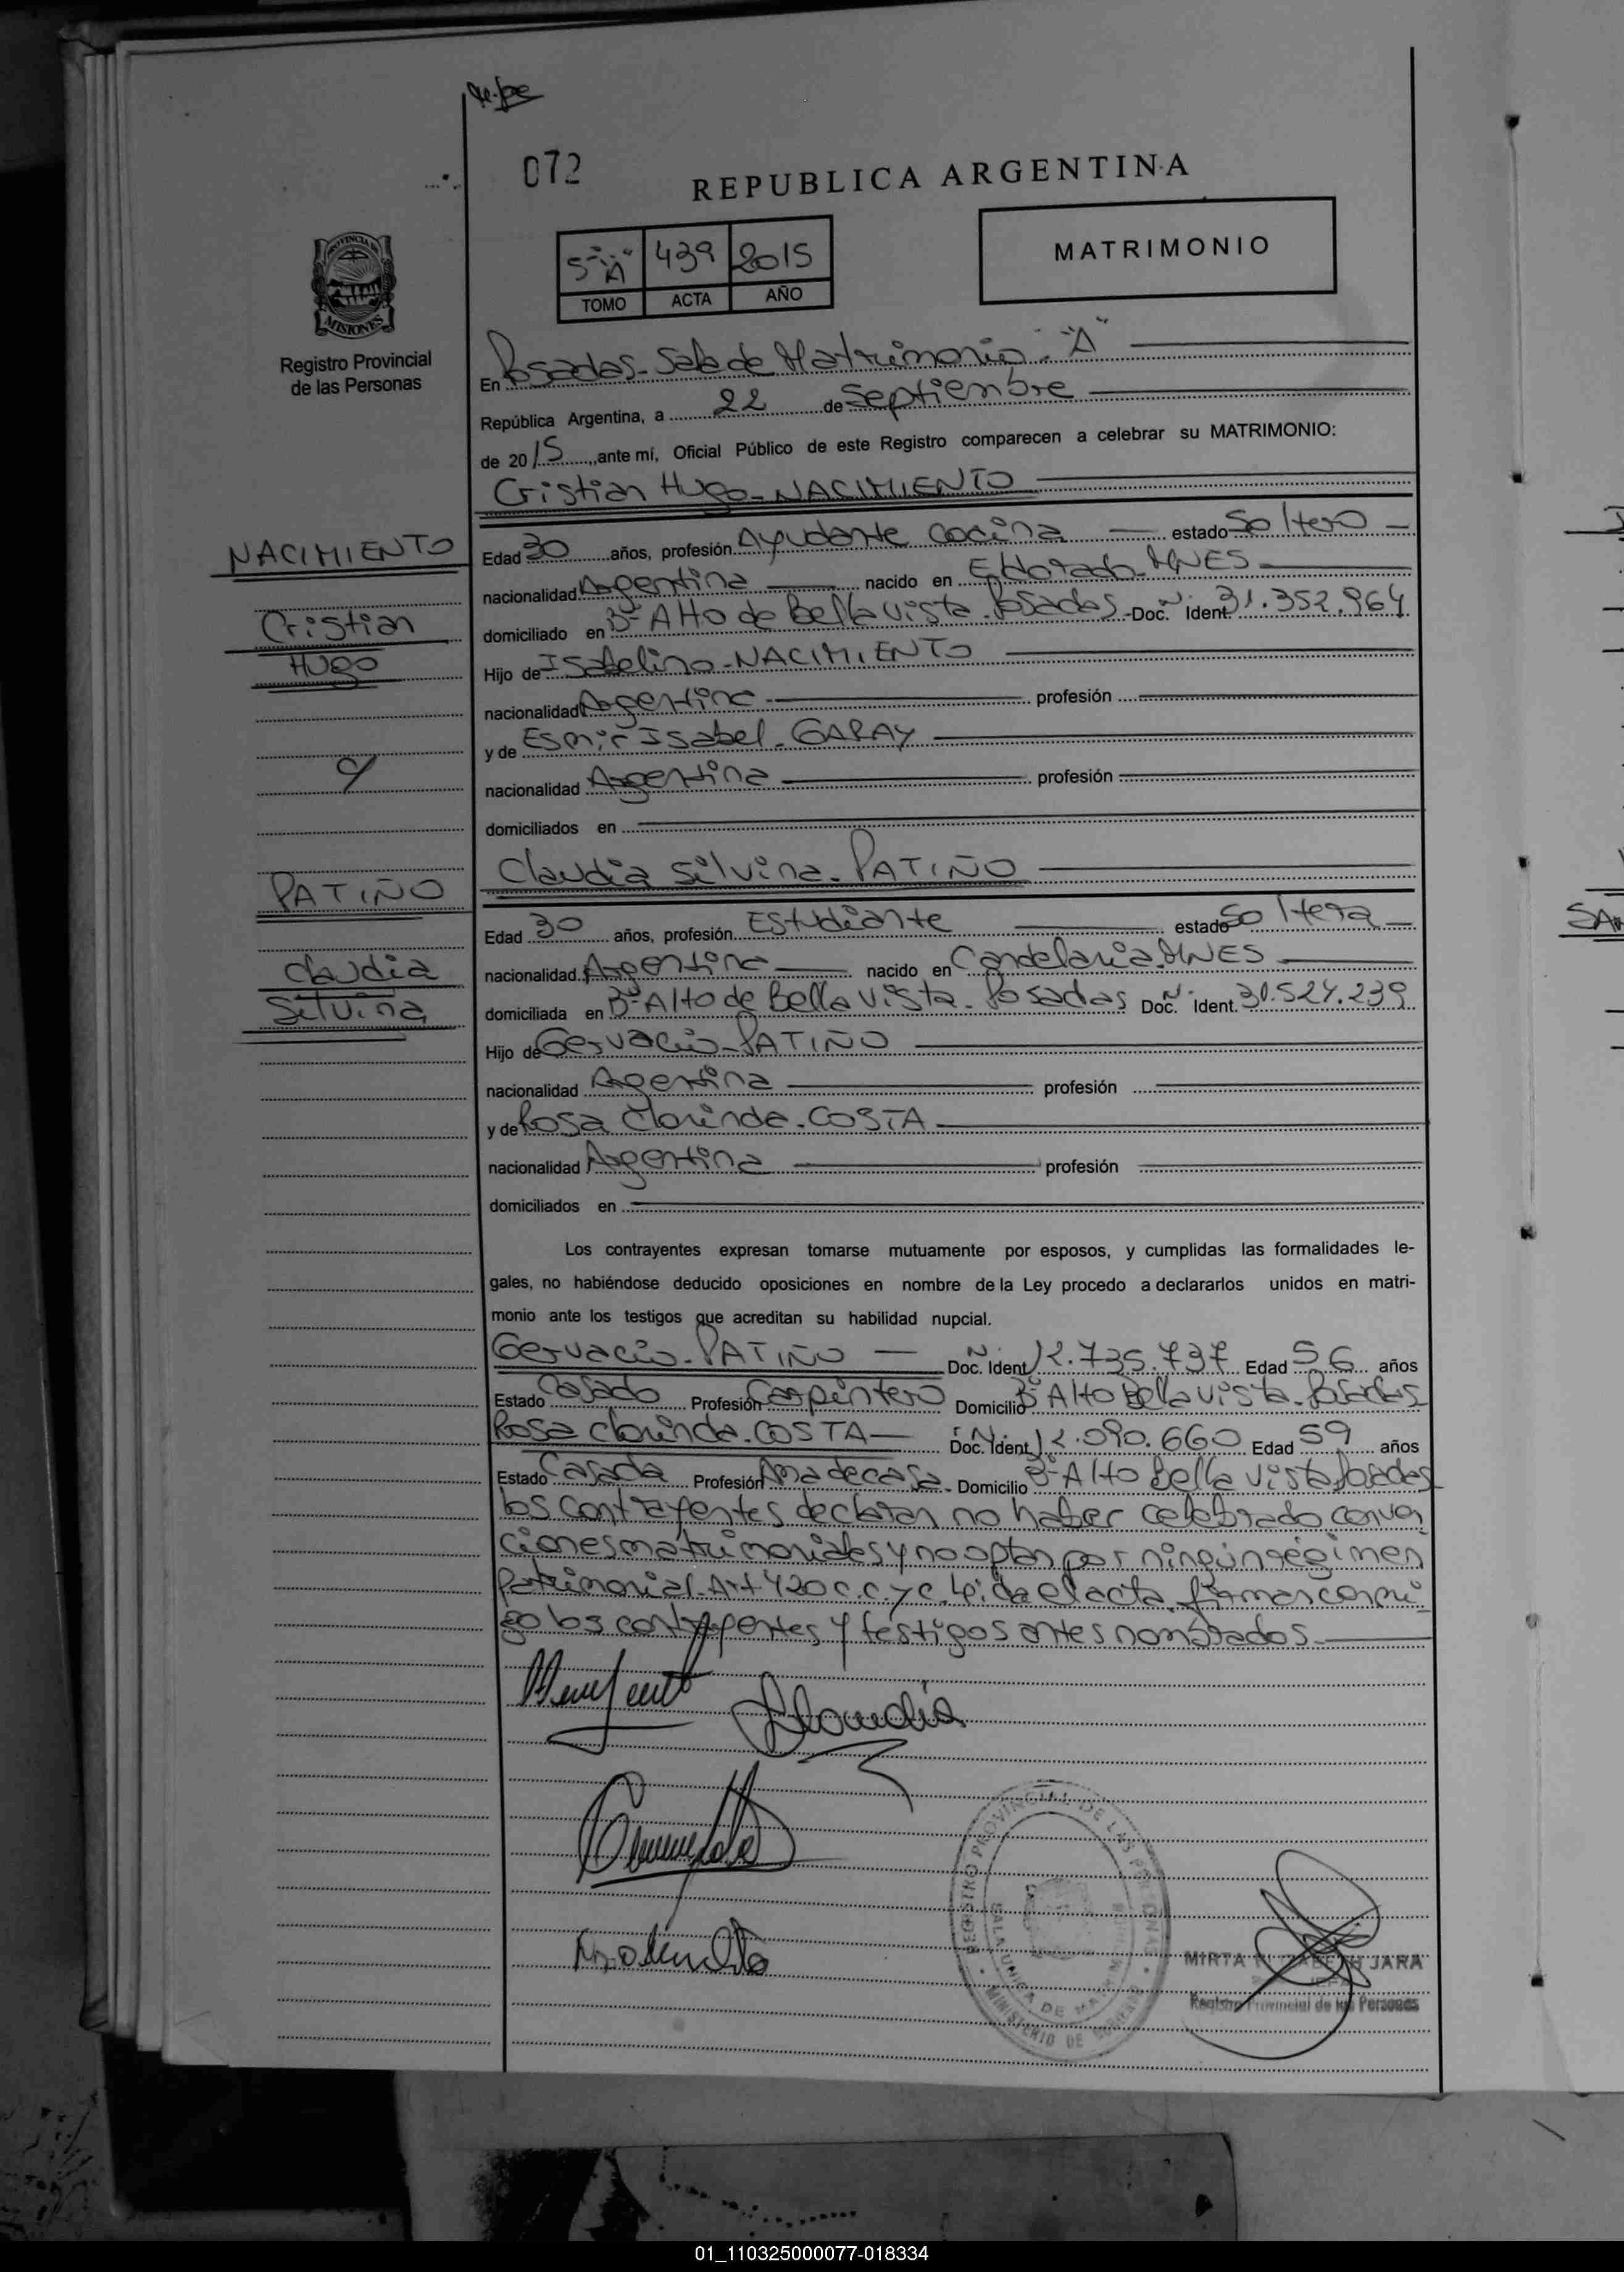 072
REPUBLICA ARGENTINA
5º "A" 439 2015
TOMO ACTA AÑO
MATRIMONIO
PROVINCIA DE
MISIONES
Registro Provincial
de las Personas
En Posadas-Sala de Matrimonio-"A"
República Argentina, a 22 de Septiembre
de 2015, ante mí, Oficial Público de este Registro comparecen a celebrar su MATRIMONIO:
Cristian Hugo-NACIMIENTO
NACIMIENTO
Cristian
Hugo
Edad 30 años, profesión Ayudante cocina estado Soltero
nacionalidad Argentina nacido en Eldorado-MNES
domiciliado en Bº Alto de Bella vista-Posadas-Doc. Nº Ident. 31.352.964
Hijo de Isabelino-NACIMIENTO
nacionalidad Argentina profesión
y de Esmir Isabel-GARAY
y
nacionalidad Argentina profesión
domiciliados en
Claudia Silvina-PATIÑO
PATIÑO
Claudia
Silvina
Edad 30 años, profesión Estudiante estado Soltera
nacionalidad Argentina nacido en Candelaria-MNES
domiciliada en Bº Alto de Bella vista-Posadas Doc. Nº Ident. 31.524.239
Hijo de Gervacio-PATIÑO
nacionalidad Argentina profesión
y de Rosa Clorinda-COSTA
nacionalidad Argentina profesión
domiciliados en
Los contrayentes expresan tomarse mutuamente por esposos, y cumplidas las formalidades le-
gales, no habiéndose deducido oposiciones en nombre de la Ley procedo a declararlos unidos en matri-
monio ante los testigos que acreditan su habilidad nupcial.
Gervacio-PATIÑO Doc. Nº Ident. 12.735.737 Edad 56 años
Estado Casado Profesión Carpintero Domicilio Bº Alto Bella vista-Posadas
Rosa Clorinda-COSTA Doc. Nº Ident. 12.090.660 Edad 59 años
Estado Casada Profesión Ama de casa-Domicilio Bº Alto Bella vista Posadas
los contrayentes declaran no haber celebrado conven
ciones matrimoniales y no optan por ningún régimen
patrimonial-Art 420 c.c.y c. Leida el acta, firman conmi
go los contrayentes y testigos antes nombrados.
Claudia
REGISTRO PROVINCIAL DE LAS PERSONAS
SALA UNICA DE
MINISTERIO DE
MIRTA ELIZABETH JARA
Registro Provincial de las Personas
01_110325000077-018334